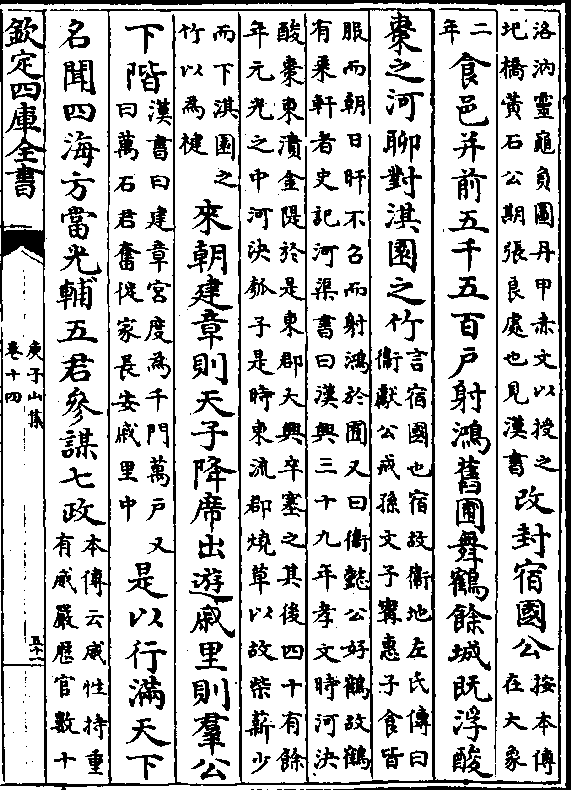 洛汭靈龜負圖丹甲赤文以授之
圯橋黃石公期張良處也見漢書
改封宿國公
按本傳
在大象
二
年
食邑并前五千五百戶射鴻舊圃舞鶴餘城既浮酸
棗之河聊對淇園之竹
言宿國也宿故衞地左氏傳曰
衞獻公戒孫文子甯惠子食皆
服而朝日旰不召而射鴻於圃又曰衞懿公好鶴故鶴
有乗軒者史記河渠書曰漢興三十九年孝文時河決
酸棗東潰金隄於是東郡大興卒塞之其後四十有餘
年元光之中河決瓠子是時東流郡燒草以故柴薪少
而下淇園之
竹以為楗
來朝建章則天子降席出遊戚里則羣公
下階
漢書曰建章宮度為千門萬戶又
曰萬石君奮徙家長安戚里中
是以行滿天下
名聞四海方當光輔五君參謀七政
本傳云威性持重
有威嚴歷官數十
欽定四庫全書
庾子山集
卷十四
五十二